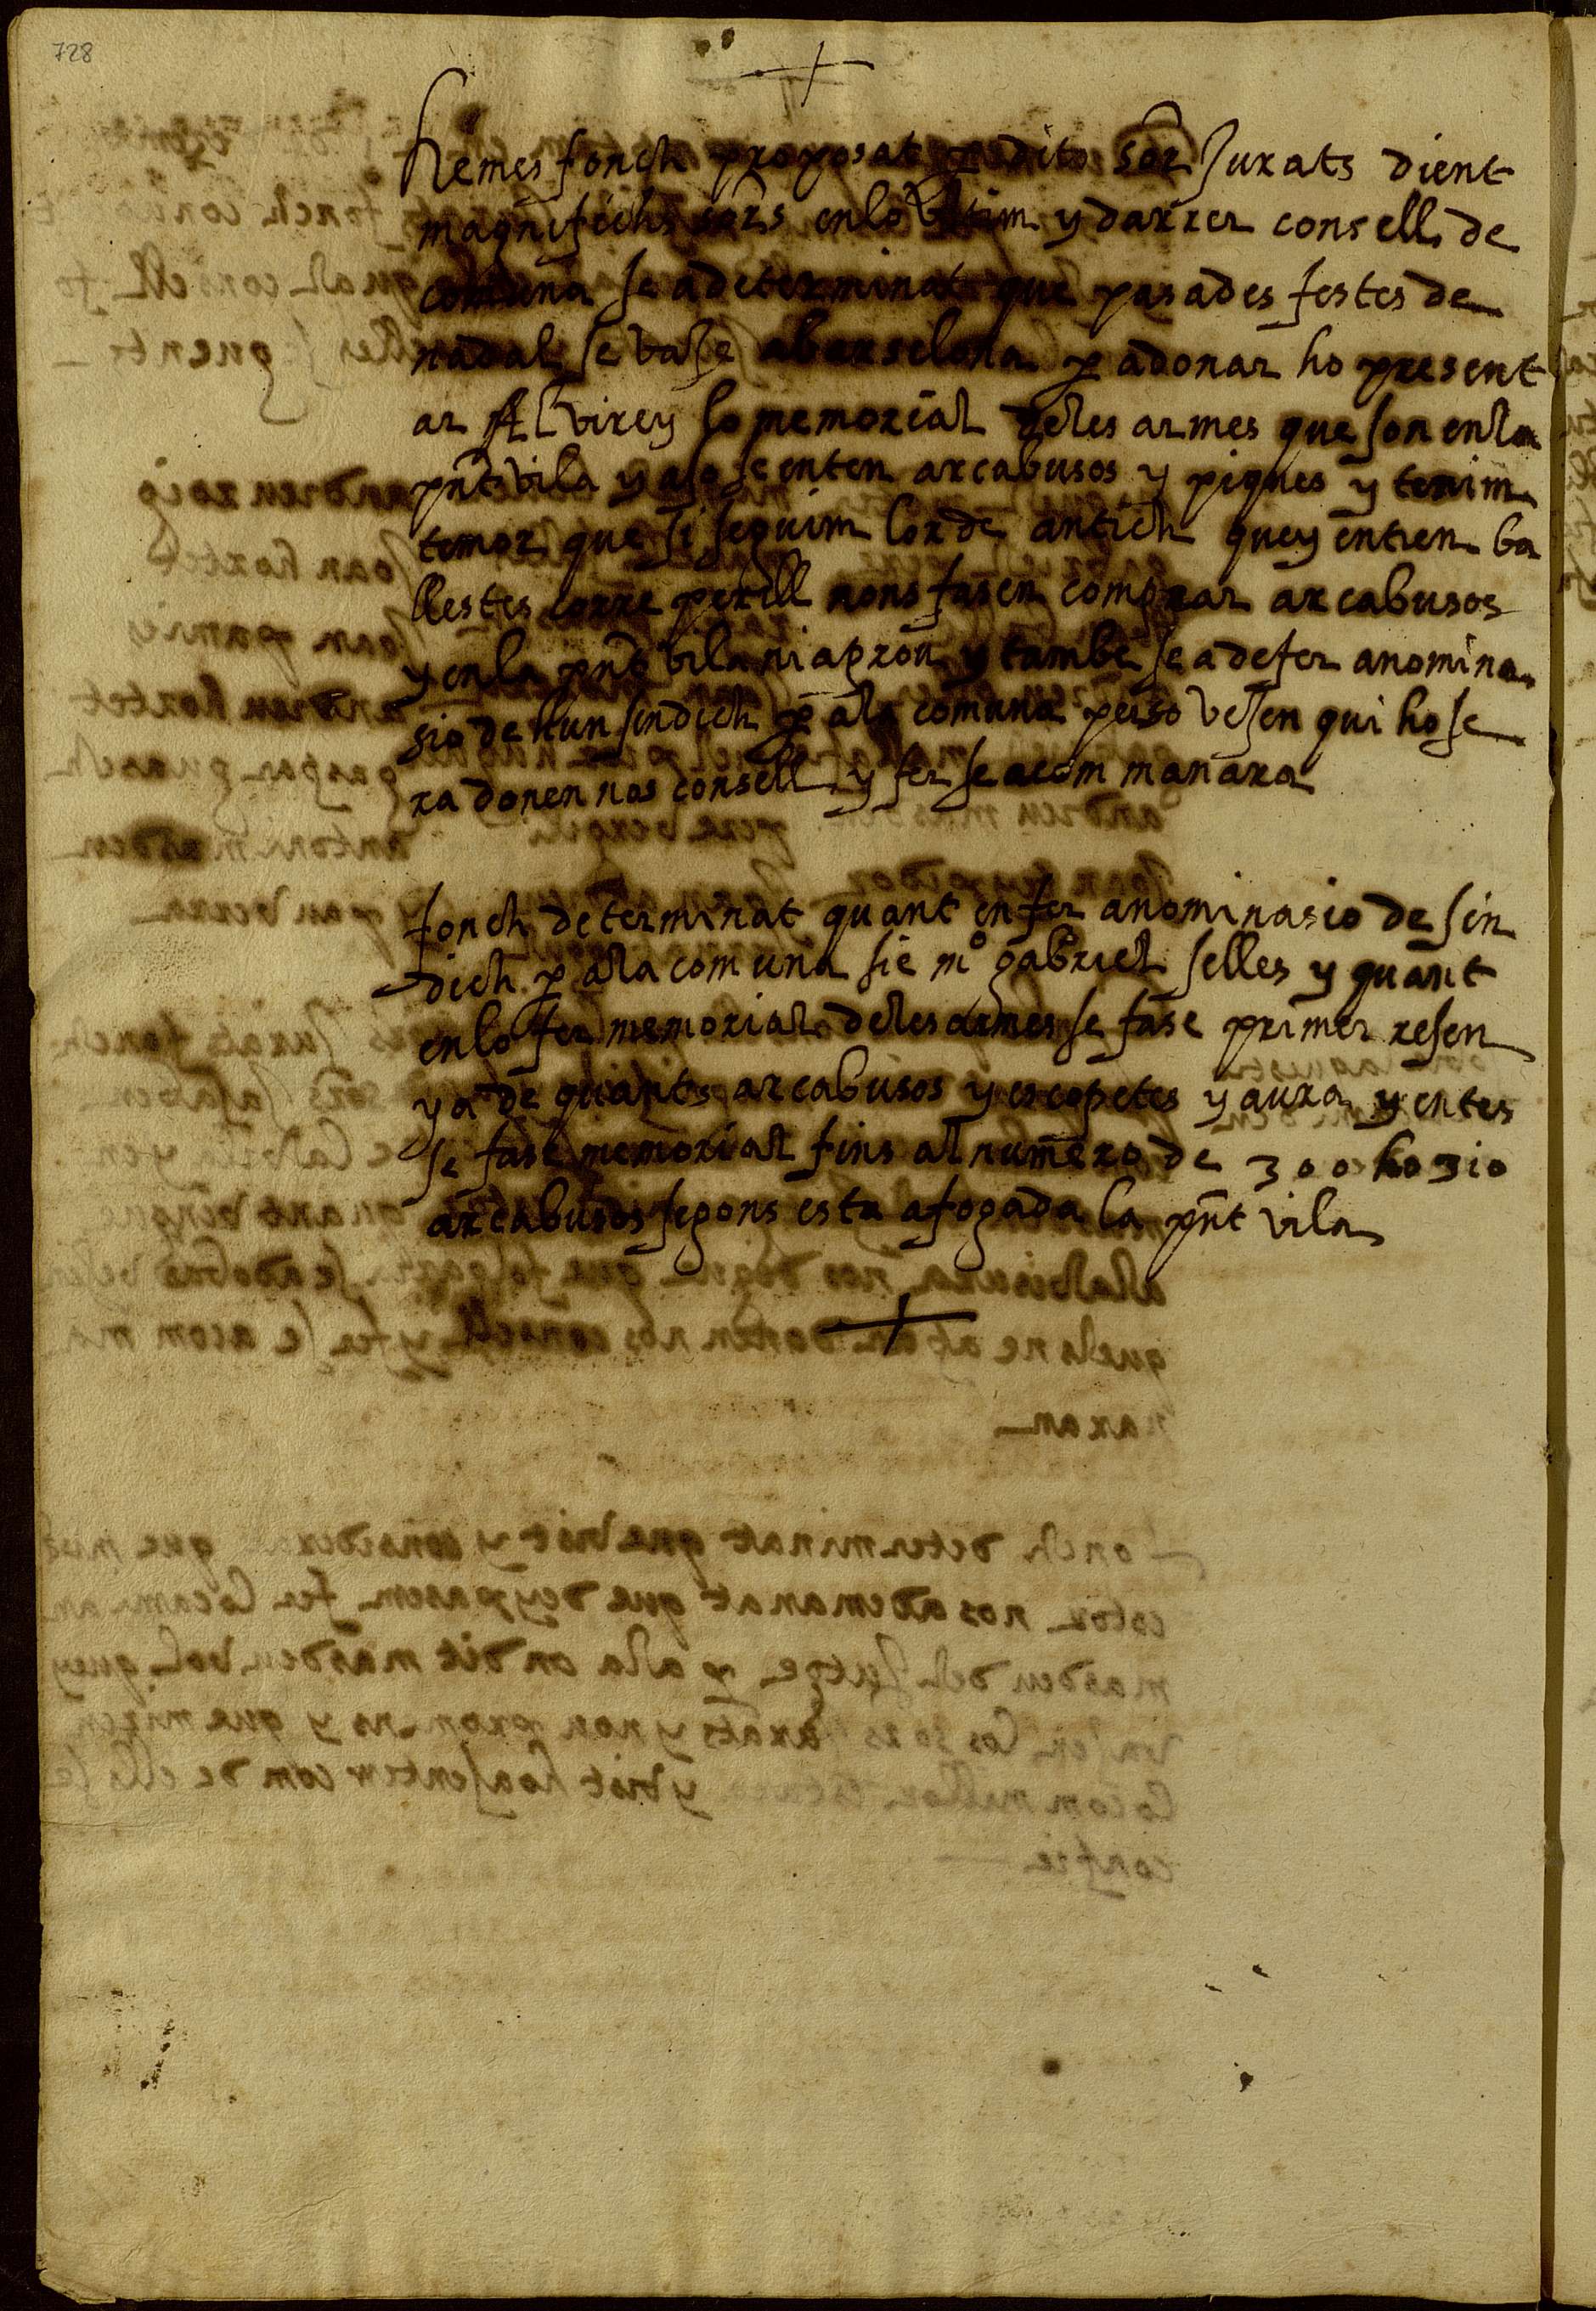 728
hemes fonch proposat per dits sors Jurats dient
magnifichs sors en lo ultim y darrer consell de
comuna se a determinat que pasades festes de
nadal se vase a barselona p adonar ho present
ar Al virey lo memorial deles armes que son en la
pnt vila y aso se enten arcabusos y piques y tenim
temor que si seguim lorde antich quey entren ba
llestes corre perill nons fasen comprar arcabusos
y en la pnt vila ni a prou y tambe se a de fer anomina
sio de hun sindich p ala comuna perso vesen qui ho se
ra donen nos consell y fer se a com manara
fonch determinat quant en fer anominasio de sin
dich p ala comuna sie mº gabriel selles y quant
en lo fer memorial deles armes se fase primer resen
ya de quants arcabusos y escopetes y aura y entes
se fase memorial fins al numero de 300 ho 310
arcabusos segons esta afogada la pnt vila